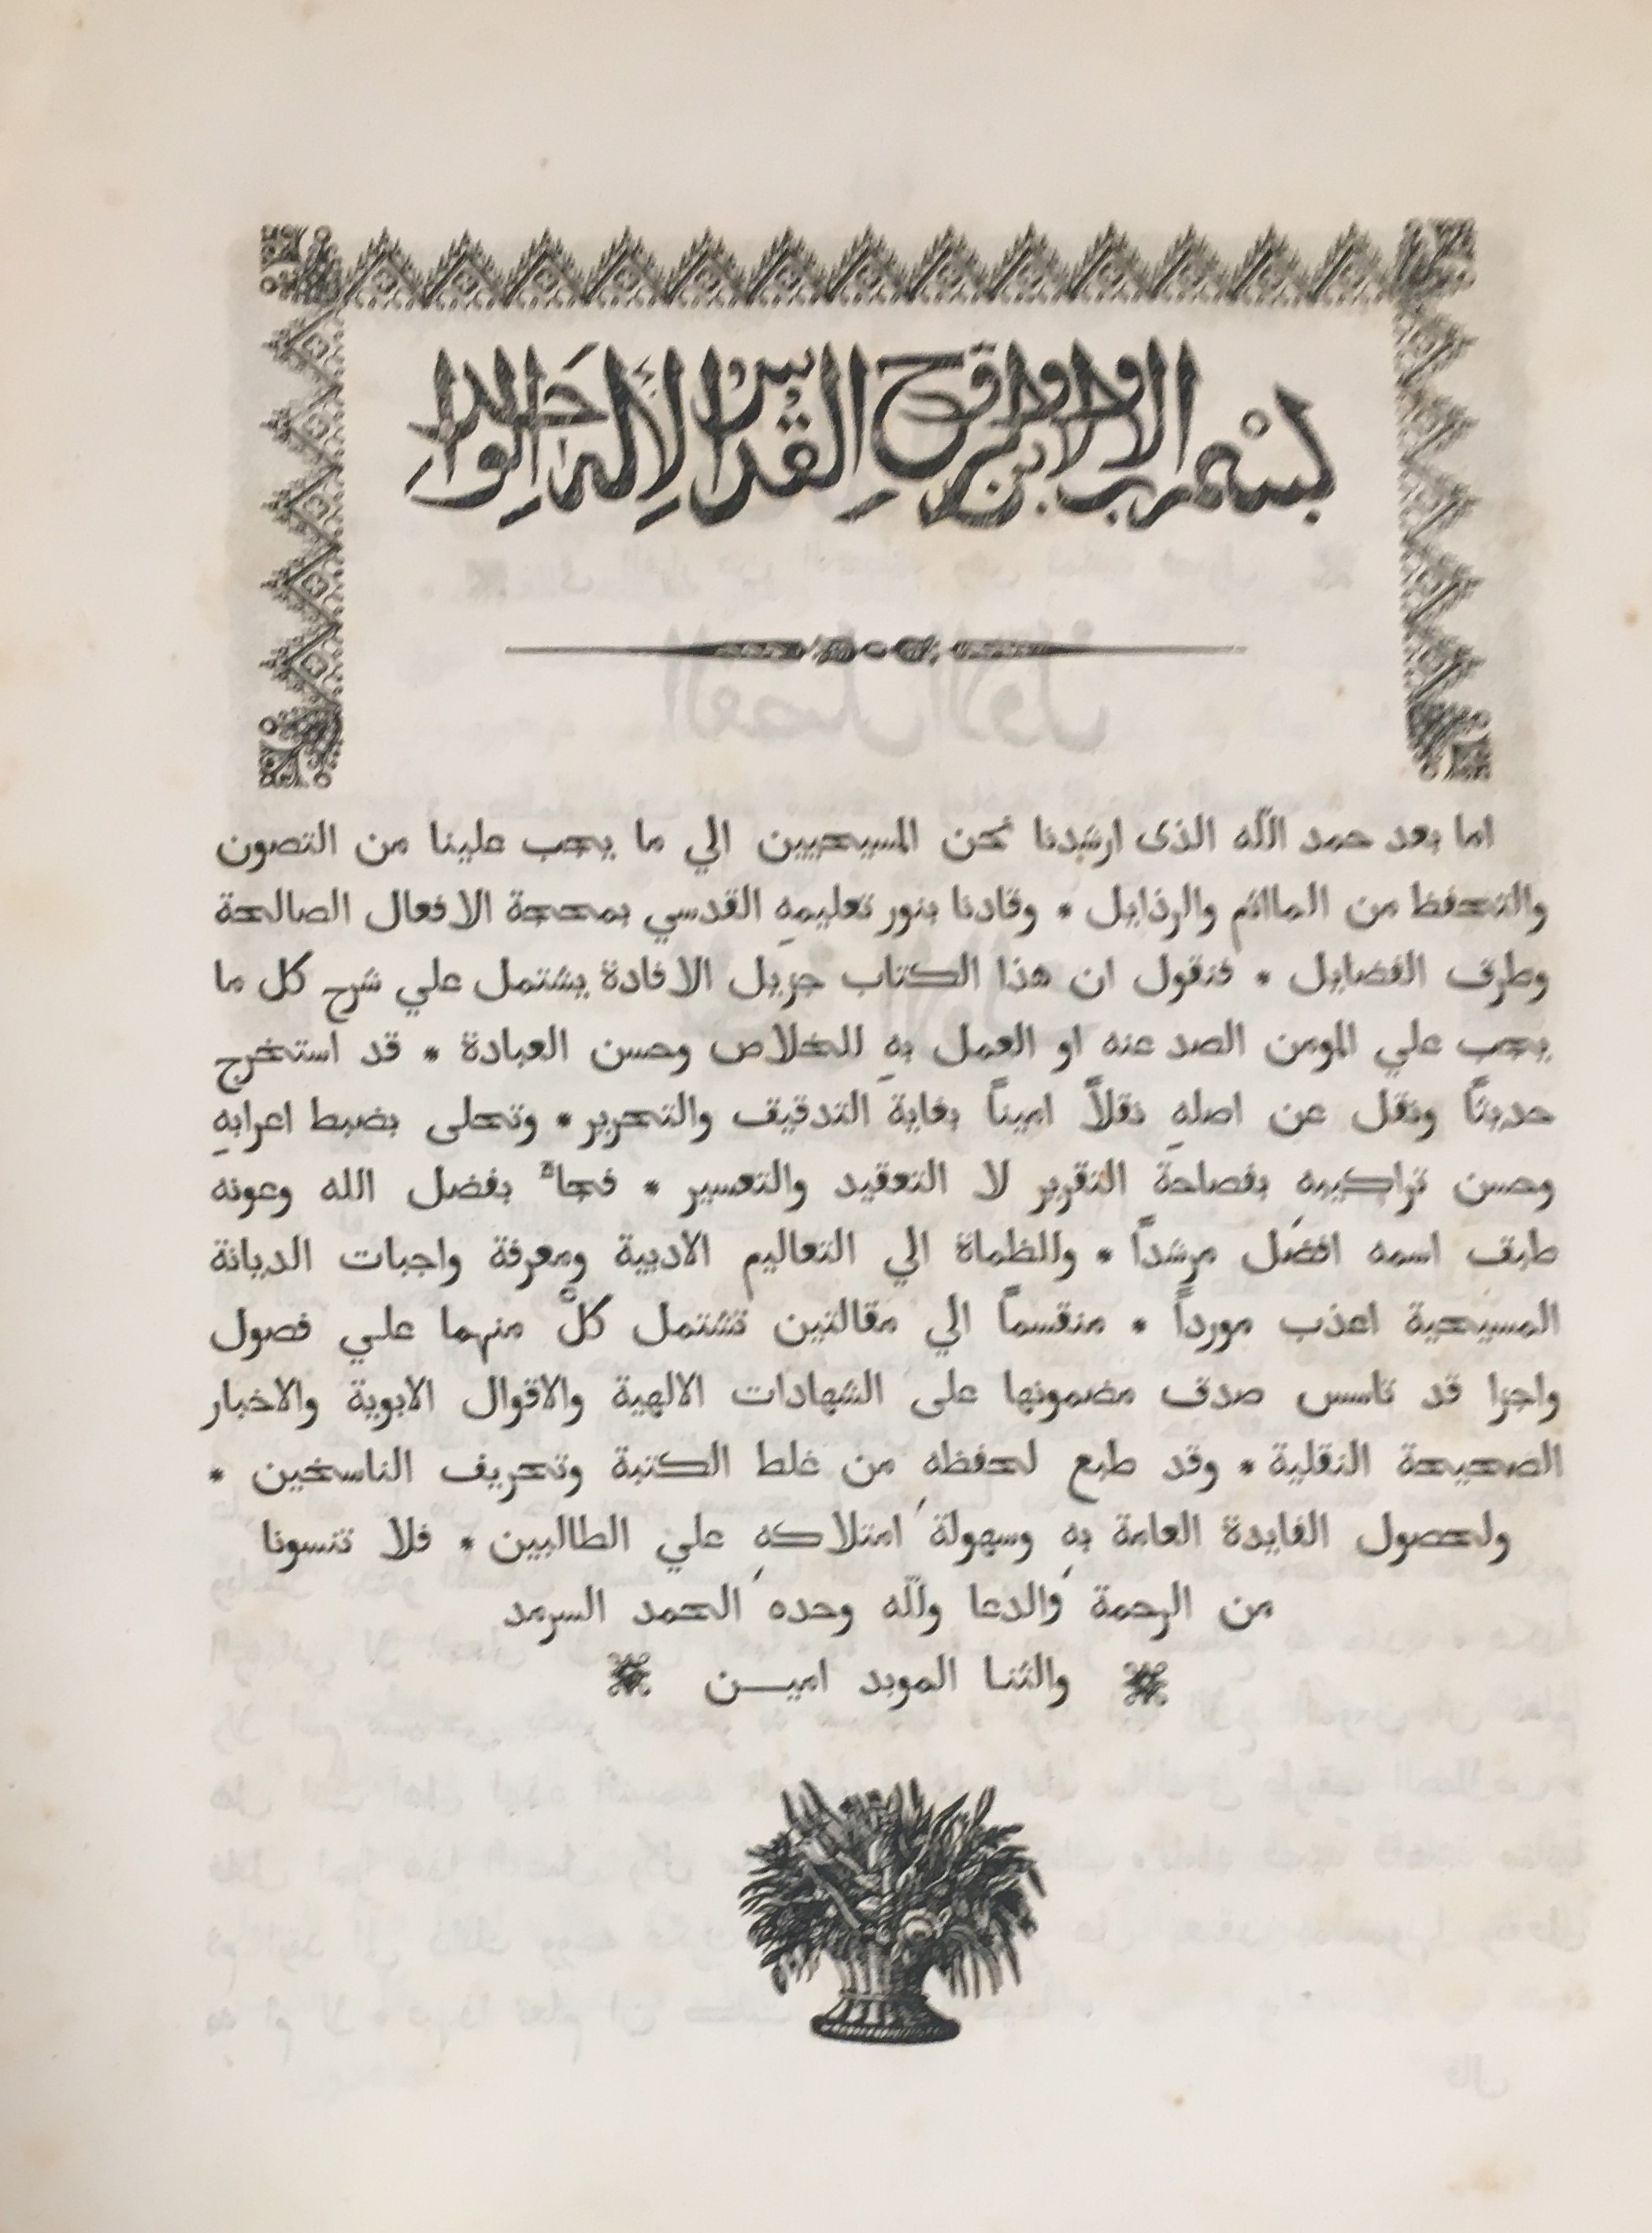 بسم الاب والابن والروح القدس الإله الواحد
اما بعد حمد الله الذى ارشدنا نحن المسيحيين الي ما يجب علينا من التصون
والتحفظ من الماائم والرذايل * وقادنا بنور تعليمهِ القدسي بمحجة الافعال الصالحة
وطرق الفضايل * فنقول ان هذا الكتاب جزيل الافادة يشتمل علي شرح كل ما
يجب علي المومن الصد عنه او العمل بهِ للخلاص وحسن العبادة * قد استخرج
حديثاً ونقل عن اصلهِ نقلاً اميناً بغاية التدقيق والتحرير * وتحلى بضبط اعرابهِ
وحسن تراكيبه بفصاحة التقرير لا التعقيد والتعسير * فجاً بفضل الله وعونه
طبق اسمه افضل مرشداً * وللظماة الي التعاليم الادبية ومعرفة واجبات الديانة
المسيحية اعذب مورداً * منقسماً الي مقالتين تشتمل كلٌ منهما علي فصول
واجزا قد تاسس صدق مضمونها على الشهادات الالهية والاقوال الابوية والاخبار
الصحيحة النقلية * وقد طبع لحفظه من غلط الكتبة وتحريف الناسخين *
ولحصول الفايدة العامة بهِ وسهولة امتلاكهِ علي الطالبين * فلا تنسونا
من الرحمة والدعا ولله وحده الحمد السرمد
والثنا الموبد اميـــن